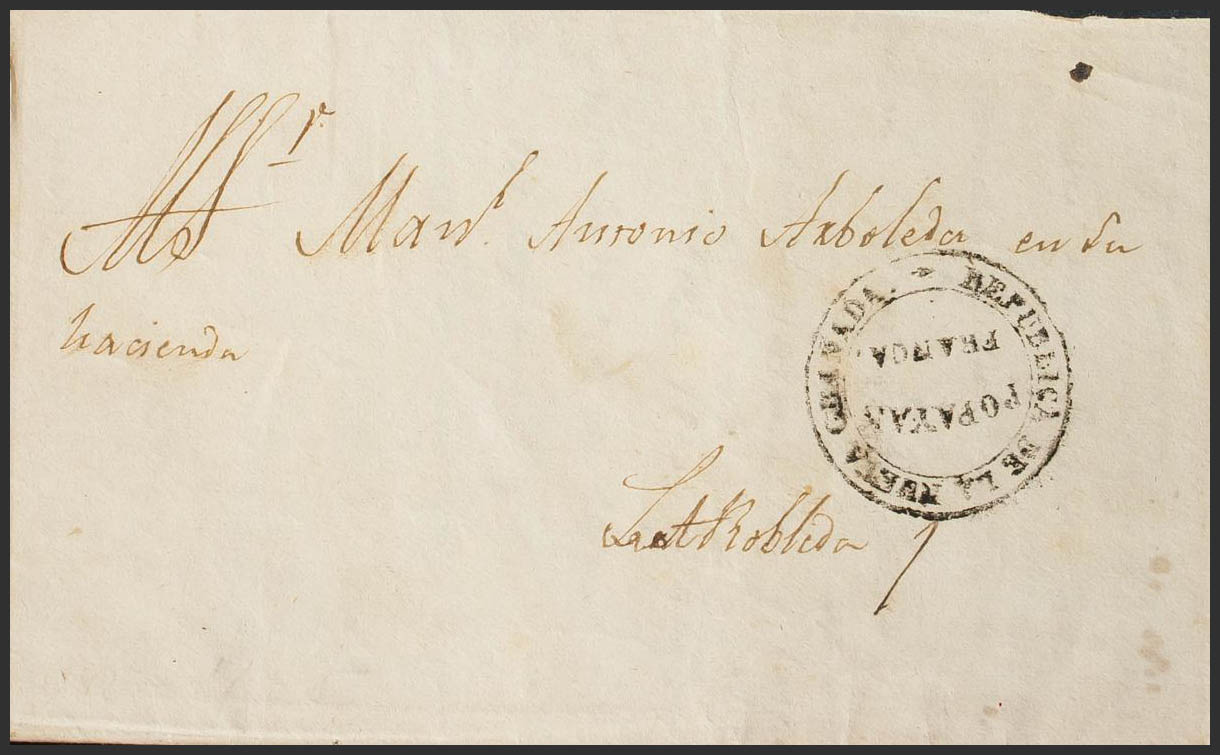 Manl. Antonio Arboleda en su
hacienda
REPUBLICA DE LA NUEVA GRANADA.
POPAYAN
FRANCA.